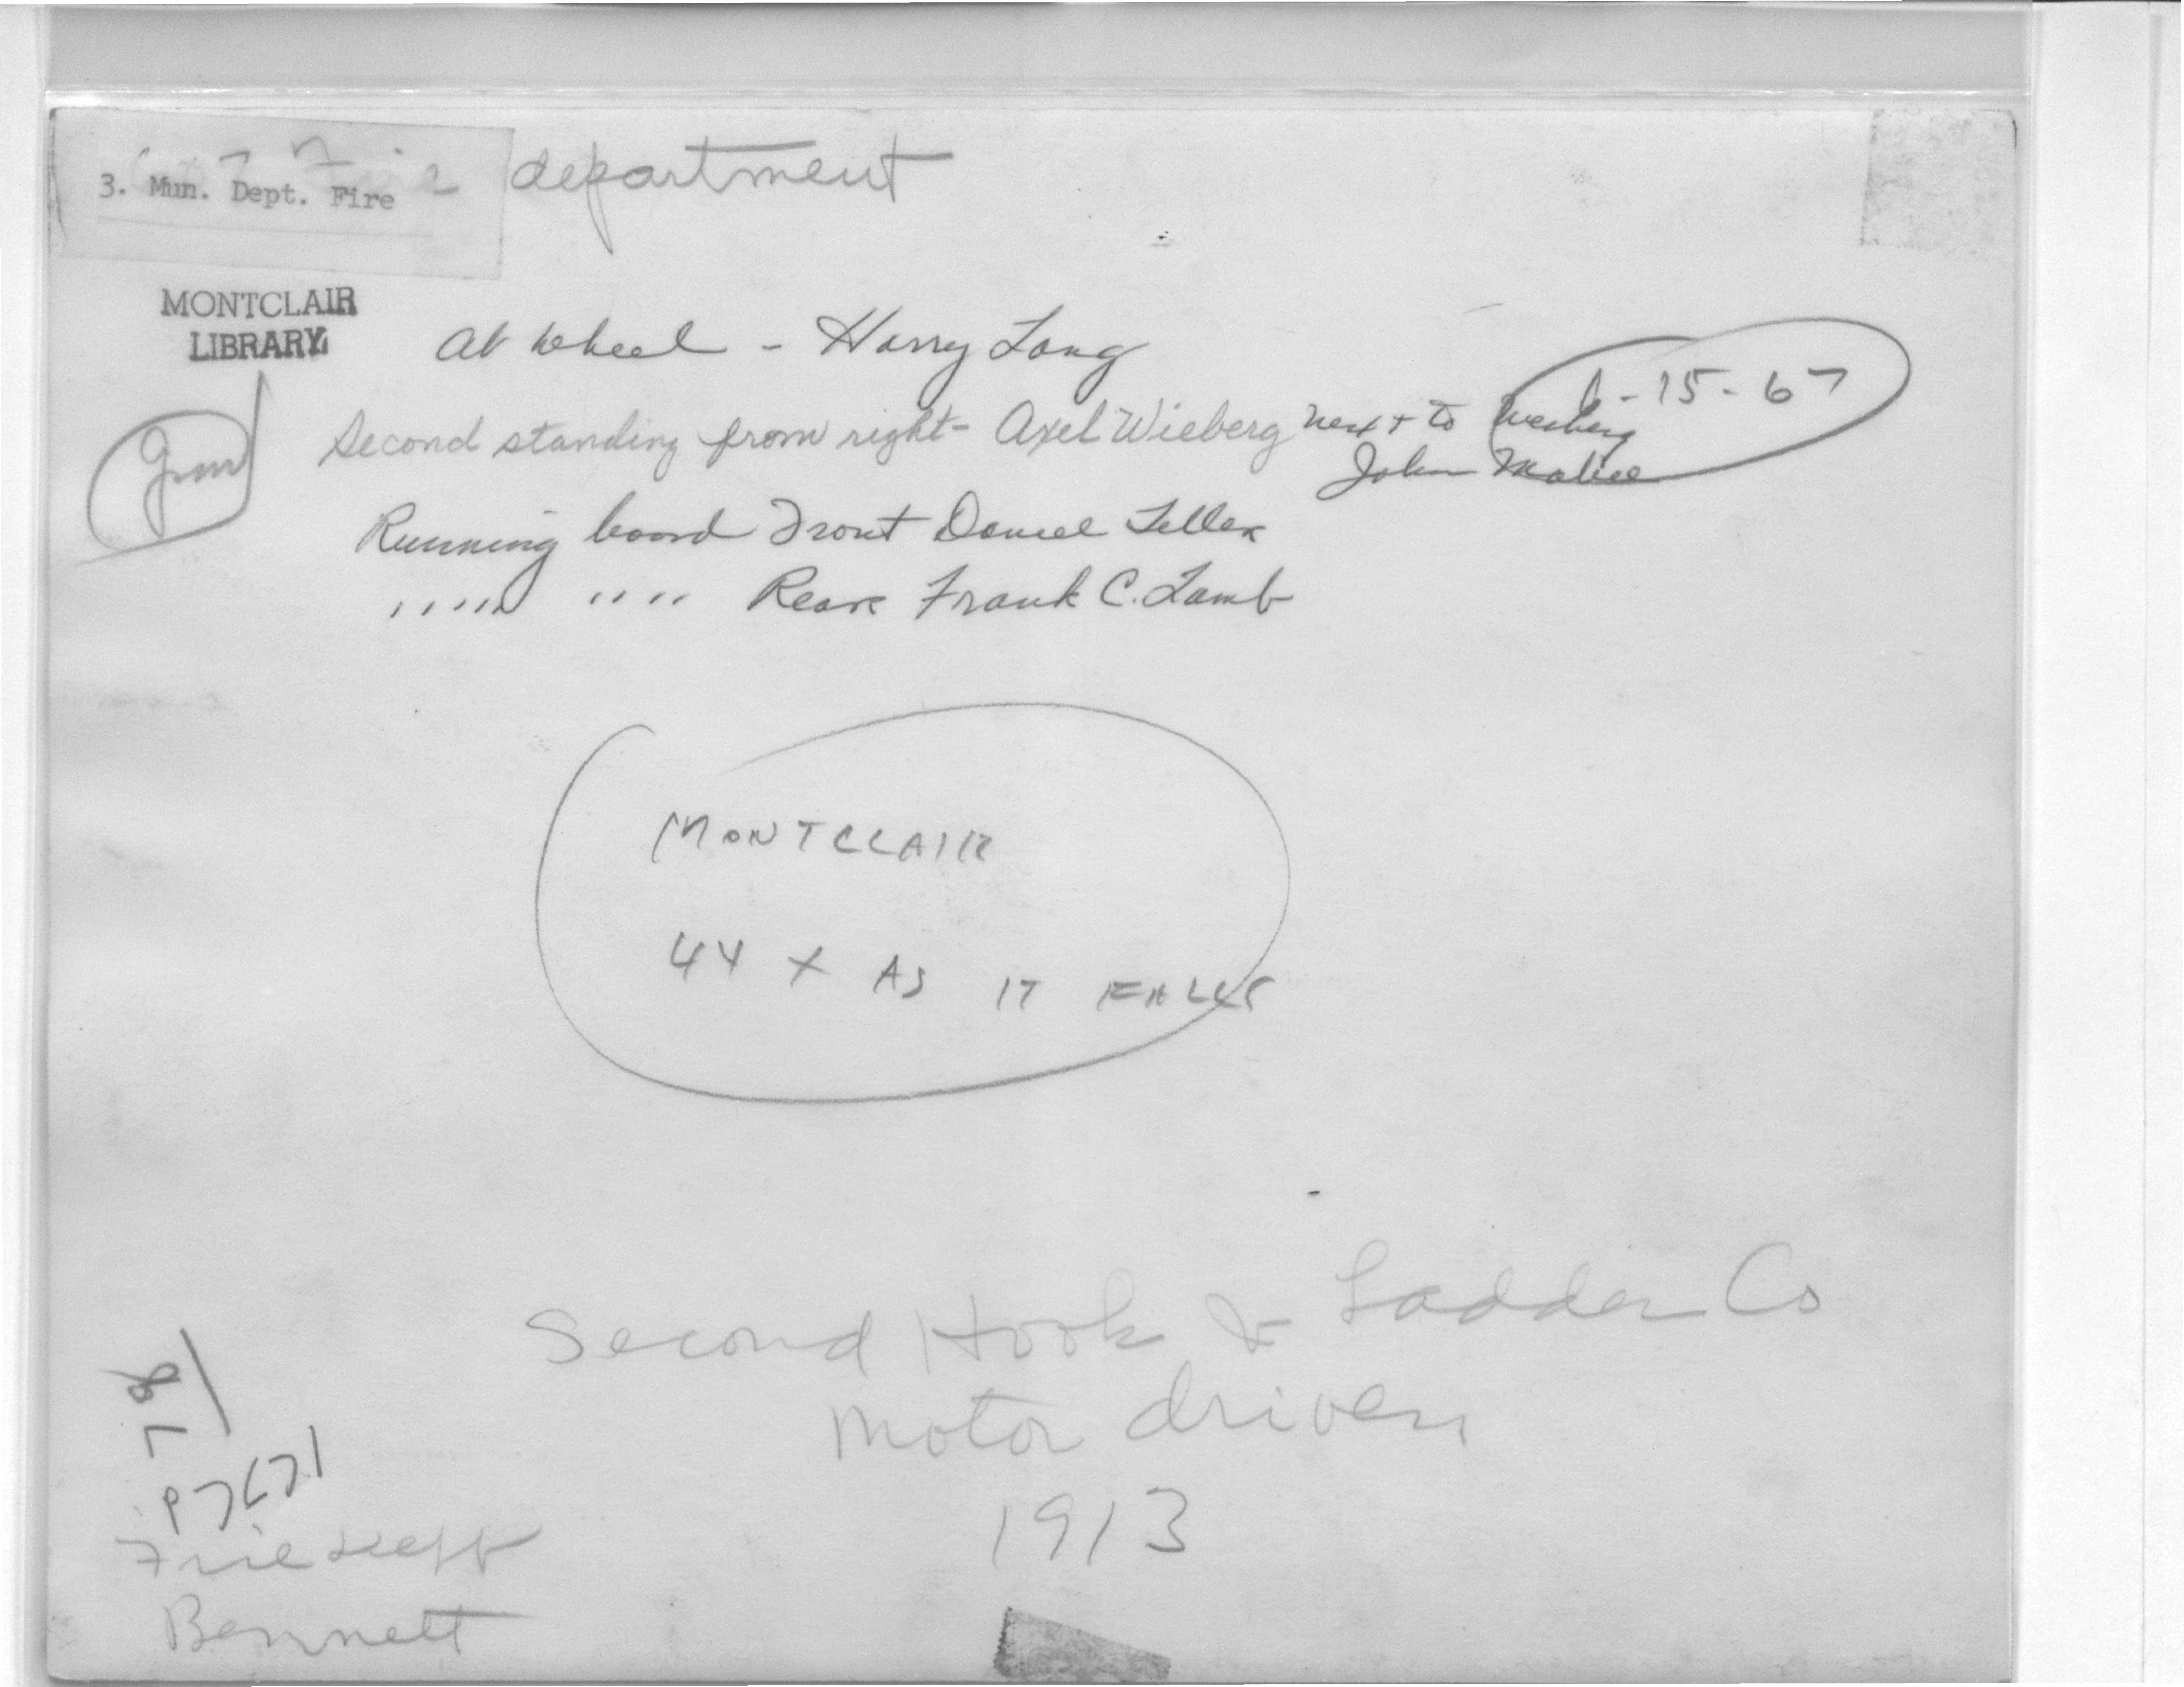 Fire department
3. Mun. Dept. Fire
MONTCLAIR
LIBRARY
At wheel - Harry Long
-15-67
Second standing from right - Axel Wieberg next to Wieberg
John Mabie
Running board Front Daniel Teller
" " " " Rear Frank C. Lamb
MONTCLAIR
44 X AS IT FALLS
Second Hook & Ladder Co
Motor driven
1913
Fire Dept
Bennett